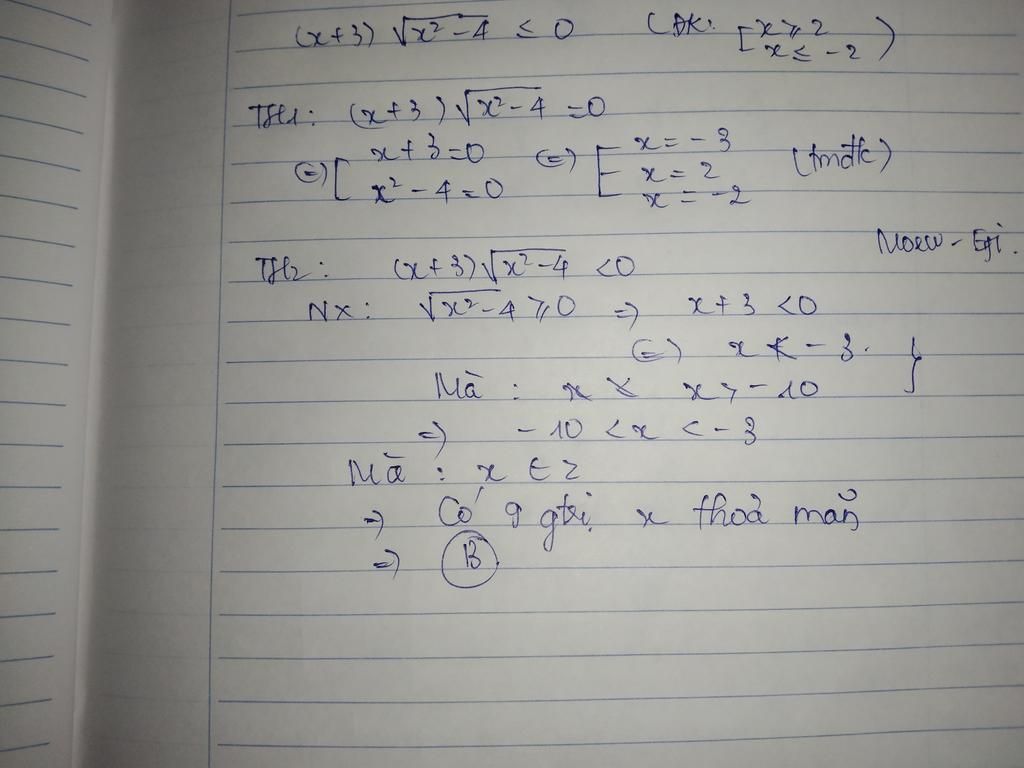 (x+3) √(x²-4) ≤ 0 (ĐK: [ x ≥ 2
x ≤ -2 )
TH1: (x+3) √(x²-4) = 0
⇔ [ x+3=0
x²-4=0
⇔ [ x = -3
x = 2
x = -2
(tmđk)
Moew - Eyi.
TH2: (x+3)√(x²-4) <0
NX: √(x²-4) ≥ 0 ⇒ x+3 <0
⇔ x < -3. }
Mà : x > -10
⇒ -10 < x < -3
Mà : x ∈ Z
⇒ Có 9 gtrị x thoả mãn
⇒ B